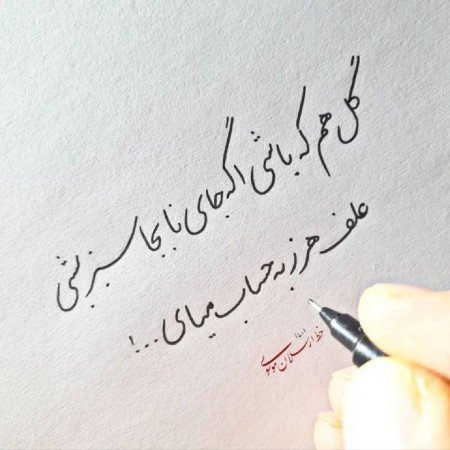 گل هم که باشی اگه جای نابجا سبز بشی
علف هرز به حساب میای...!
خط ارسلان موسوی